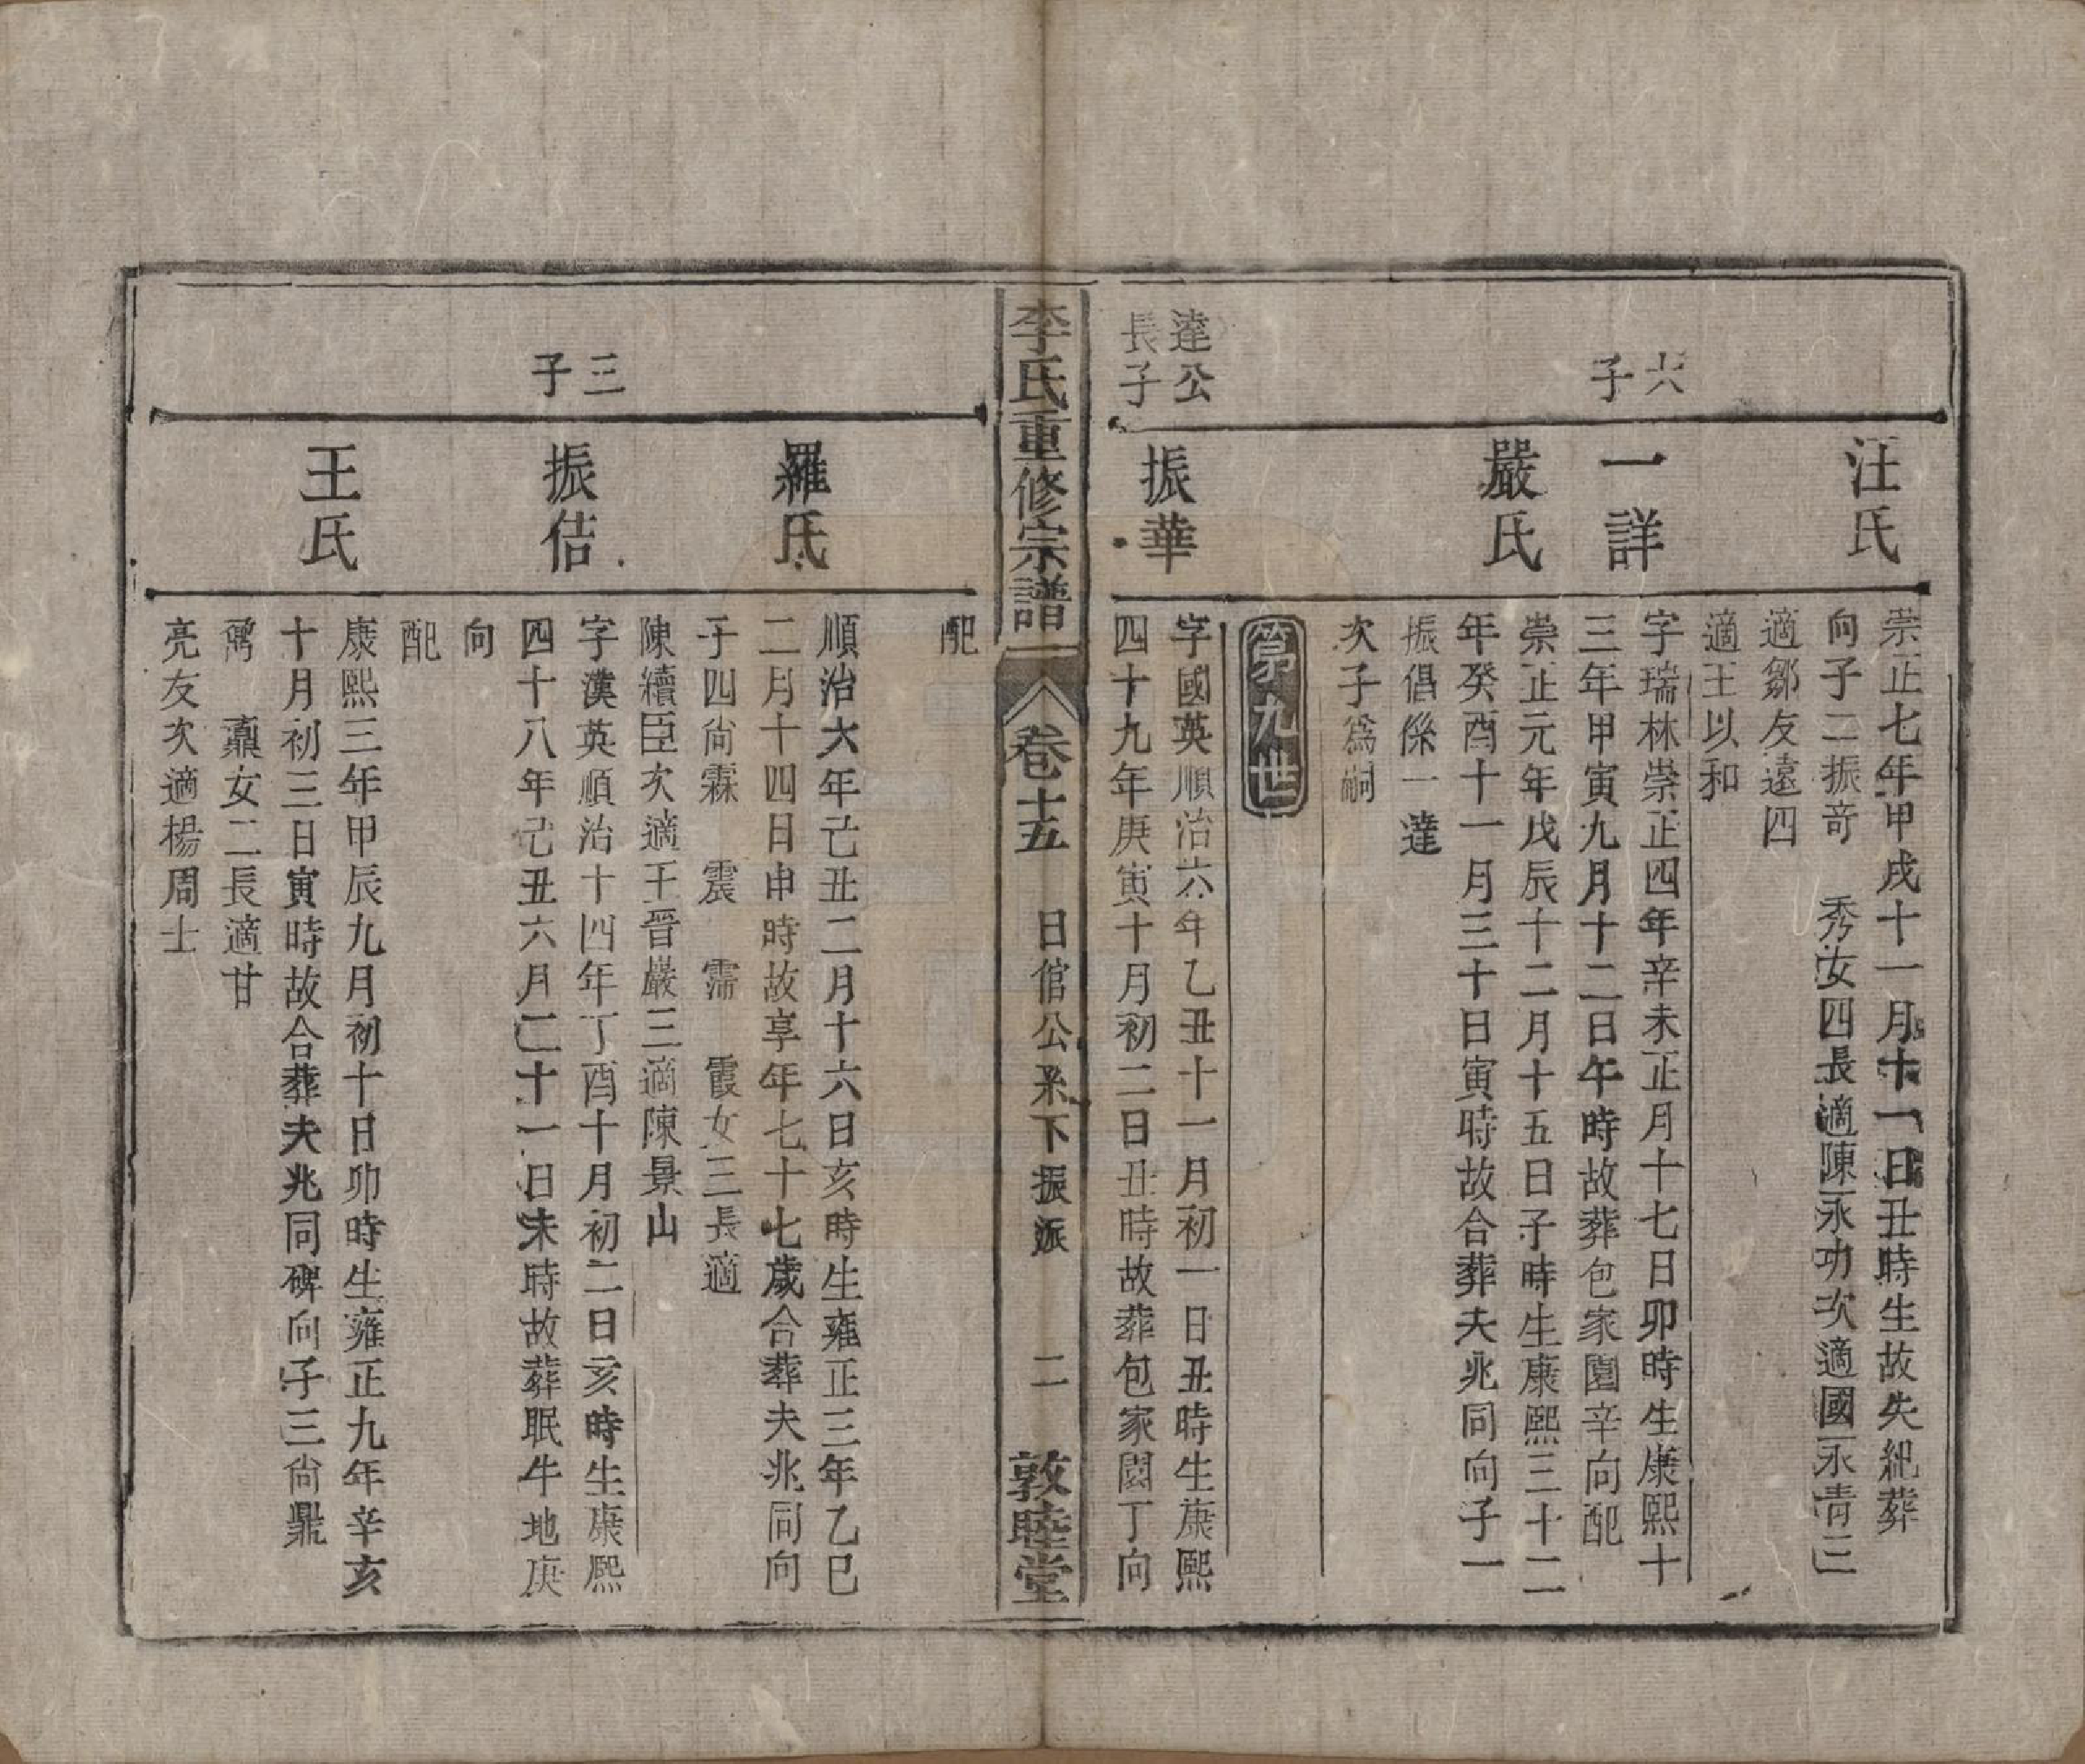 汪氏
崇正七年甲戌十一月十一日丑時生故失紀葬
向子二振奇 秀女四長適陳永功次適國永青三
適鄒友遠四
適王以和
六子
一詳
字瑞林崇正四年辛未正月十七日卯時生康熙十
三年甲寅九月十二日午時故葬包家園辛向配
嚴氏
崇正元年戊辰十二月十五日子時生康熙三十二
年癸酉十一月三十日寅時故合葬夫兆同向子一
振倡係一達
次子爲嗣
第九世
達公長子
振華
字國英順治六年乙丑十一月初一日丑時生康熙
四十九年庚寅十月初二日丑時故葬包家園丁向
李氏重修宗譜 卷十五 日倌公系下振派 二 敦睦堂
配
羅氏
順治六年己丑二月十六日亥時生雍正三年乙巳
二月十四日申時故享年七十七歲合葬夫兆同向
子四尙霖 震 霈 霞女三長適
陳續臣次適王晉嚴三適陳景山
三子
振佶
字漢英順治十四年丁酉十月初二日亥時生康熙
四十八年己丑六月二十一日未時故葬眠牛地庚
向
配
王氏
康熙三年甲辰九月初十日卯時生雍正九年辛亥
十月初三日寅時故合葬夫兆同碑向子三尙鼎
鼐 鼒女二長適甘
亮友次適楊周士